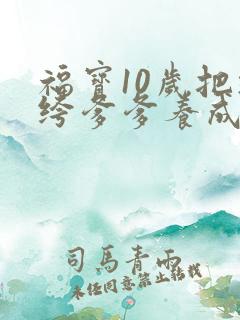 福寶10歲把
絝爹爹養成
司馬青雨
未經同意禁止轉載